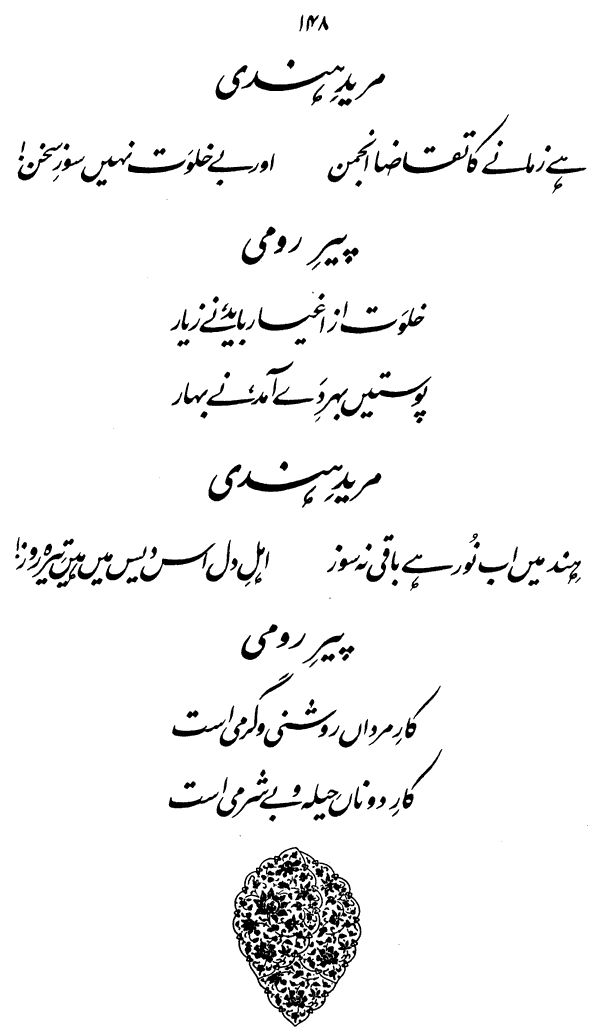 ۱۴۸
مریدِ ہندی
ہے زمانے کا تقاضا انجمن اور بے خلوَت نہیں سوزِ سخن!
پیرِ رومی
خلوَت از اغیار باید، نے زیار
پوستیں بہرِ دَے آمد، نے بہار
مریدِ ہندی
ہِند میں اب نُور ہے باقی نہ سوز اہلِ دل اس دیس میں ہیں تیرہ روز!
پیرِ رومی
کارِ مرداں روشنی و گرمی است
کارِ دوناں حیلہ و بے شرمی است